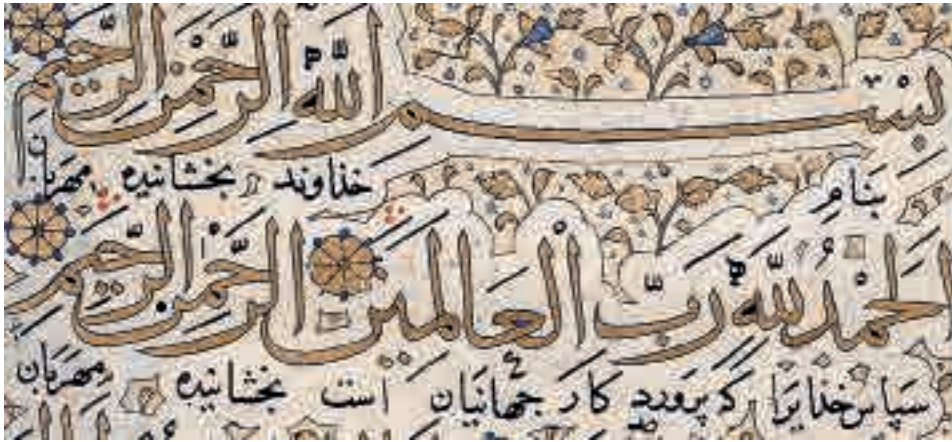 بِسْمِ اللّٰهِ الرَّحْمٰنِ الرَّحِيمِ
بنام خذاوند بخشاینده مهربان
اَلْحَمْدُ لِلّٰهِ رَبِّ الْعَالَمِينَ الرَّحْمٰنِ الرَّحِيمِ
سپاس خذایرا کی پروردکار جهانیان است بخشاینده مهربان